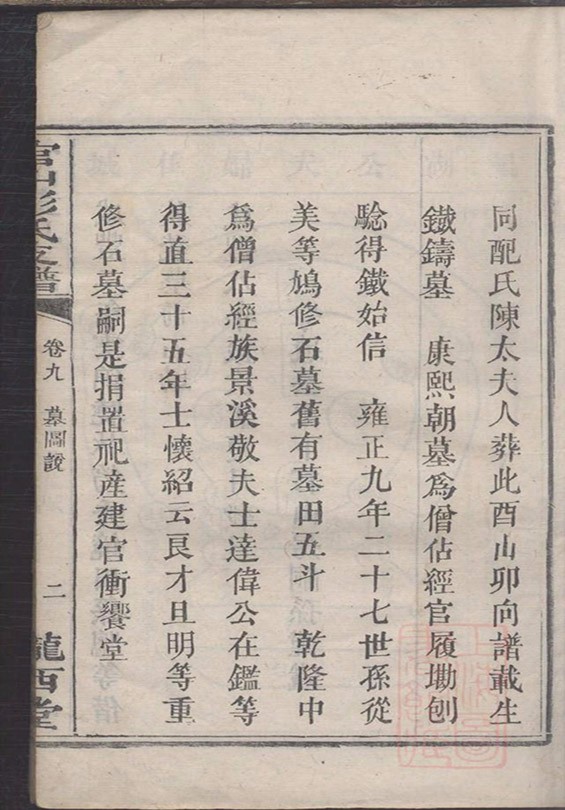 同配氏陳太夫人葬此酉山卯向譜載生
鐵鑄墓　康熙朝墓為僧佔經官履墈刨
騐得鐵始信　雍正九年二十七世孫從
美等鳩修石墓舊有墓田五斗　乾隆中
為僧佔經族景溪敬夫士達偉公在鑑等
得直三十五年士懷紹云良才且明等重
修石墓嗣是捐置祀產建官衝饗堂
宫山彭氏支譜
卷九　墓圖說　二
隴西堂